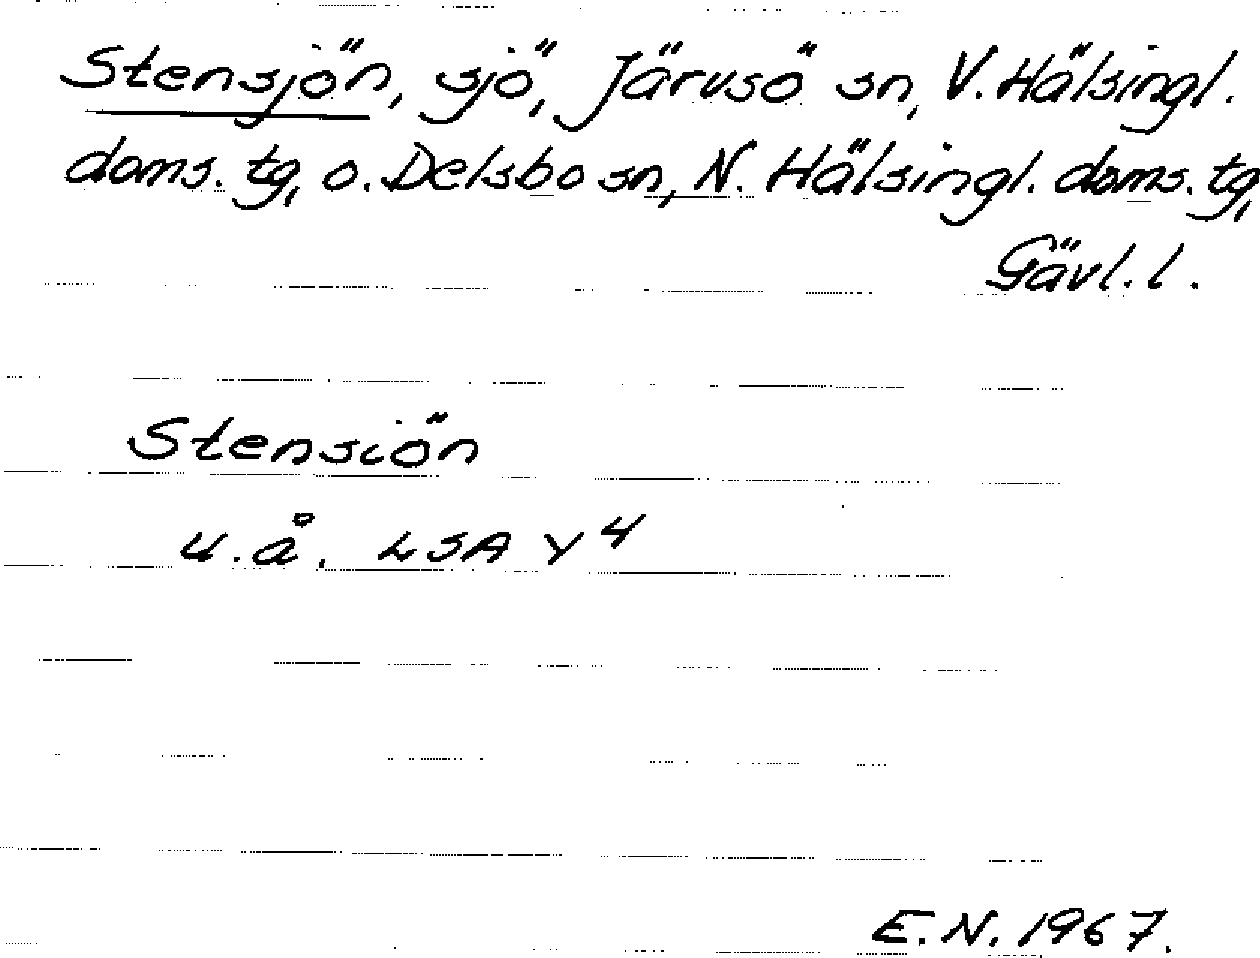 Stensjön, sjö, Järvsö sn, V. Hälsingl.
doms. tg, o. Delsbo sn, N. Hälsingl. doms. tg,
Gävl. l.
Stensiön
u.å. LSA Y 4
E.N. 1967.